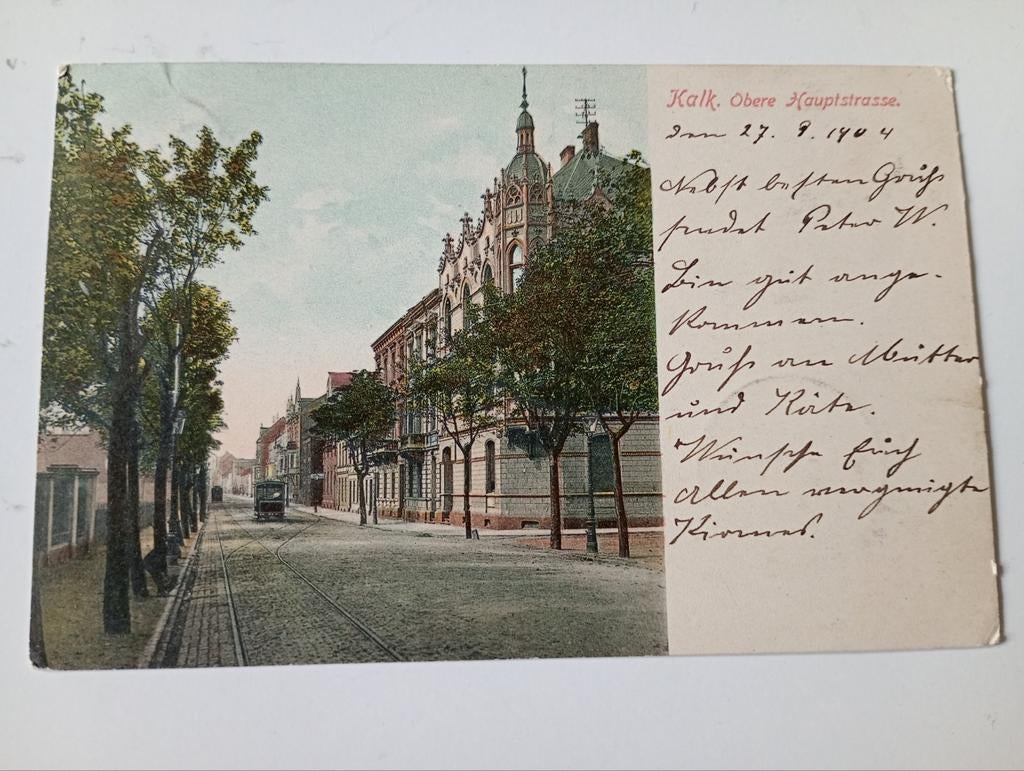 Kalk. Obere Hauptstrasse.
Den 27. 9. 1904
Nebst besten Gruß
sendet Peter W.
Bin gut ange-
kommen.
Gruß an Mutter
und Käte.
Wünsche Euch
allen vergnügte
Kirmes.